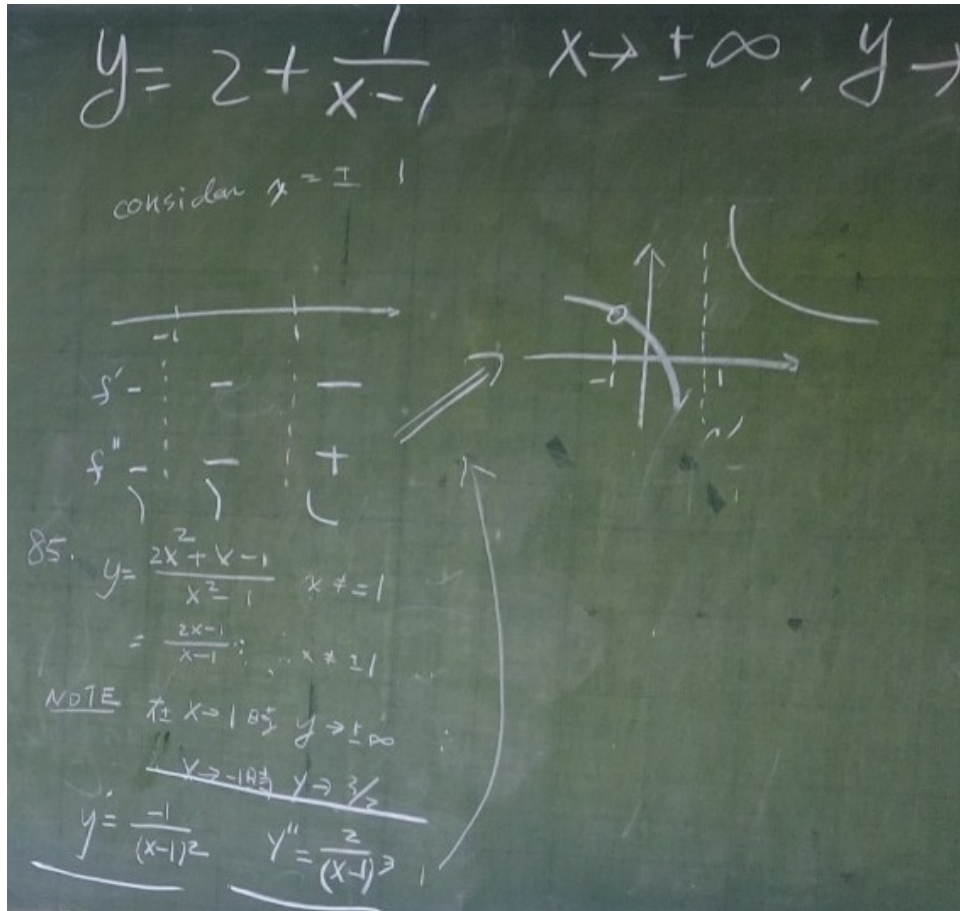 y = 2 + 1/(x-1)   x → ± ∞, y →
consider x = ± 1
-1   1
f' -   -   -
f'' -   -   +
-1   1
85. y = (2x² + x - 1)/(x² - 1)   x ≠ = 1
= (2x-1)/(x-1); x ≠ ±1
NOTE 在 x → 1 時 y → ± ∞
x → -1 時 y → 3/2
y' = -1/(x-1)²   y'' = 2/(x-1)³